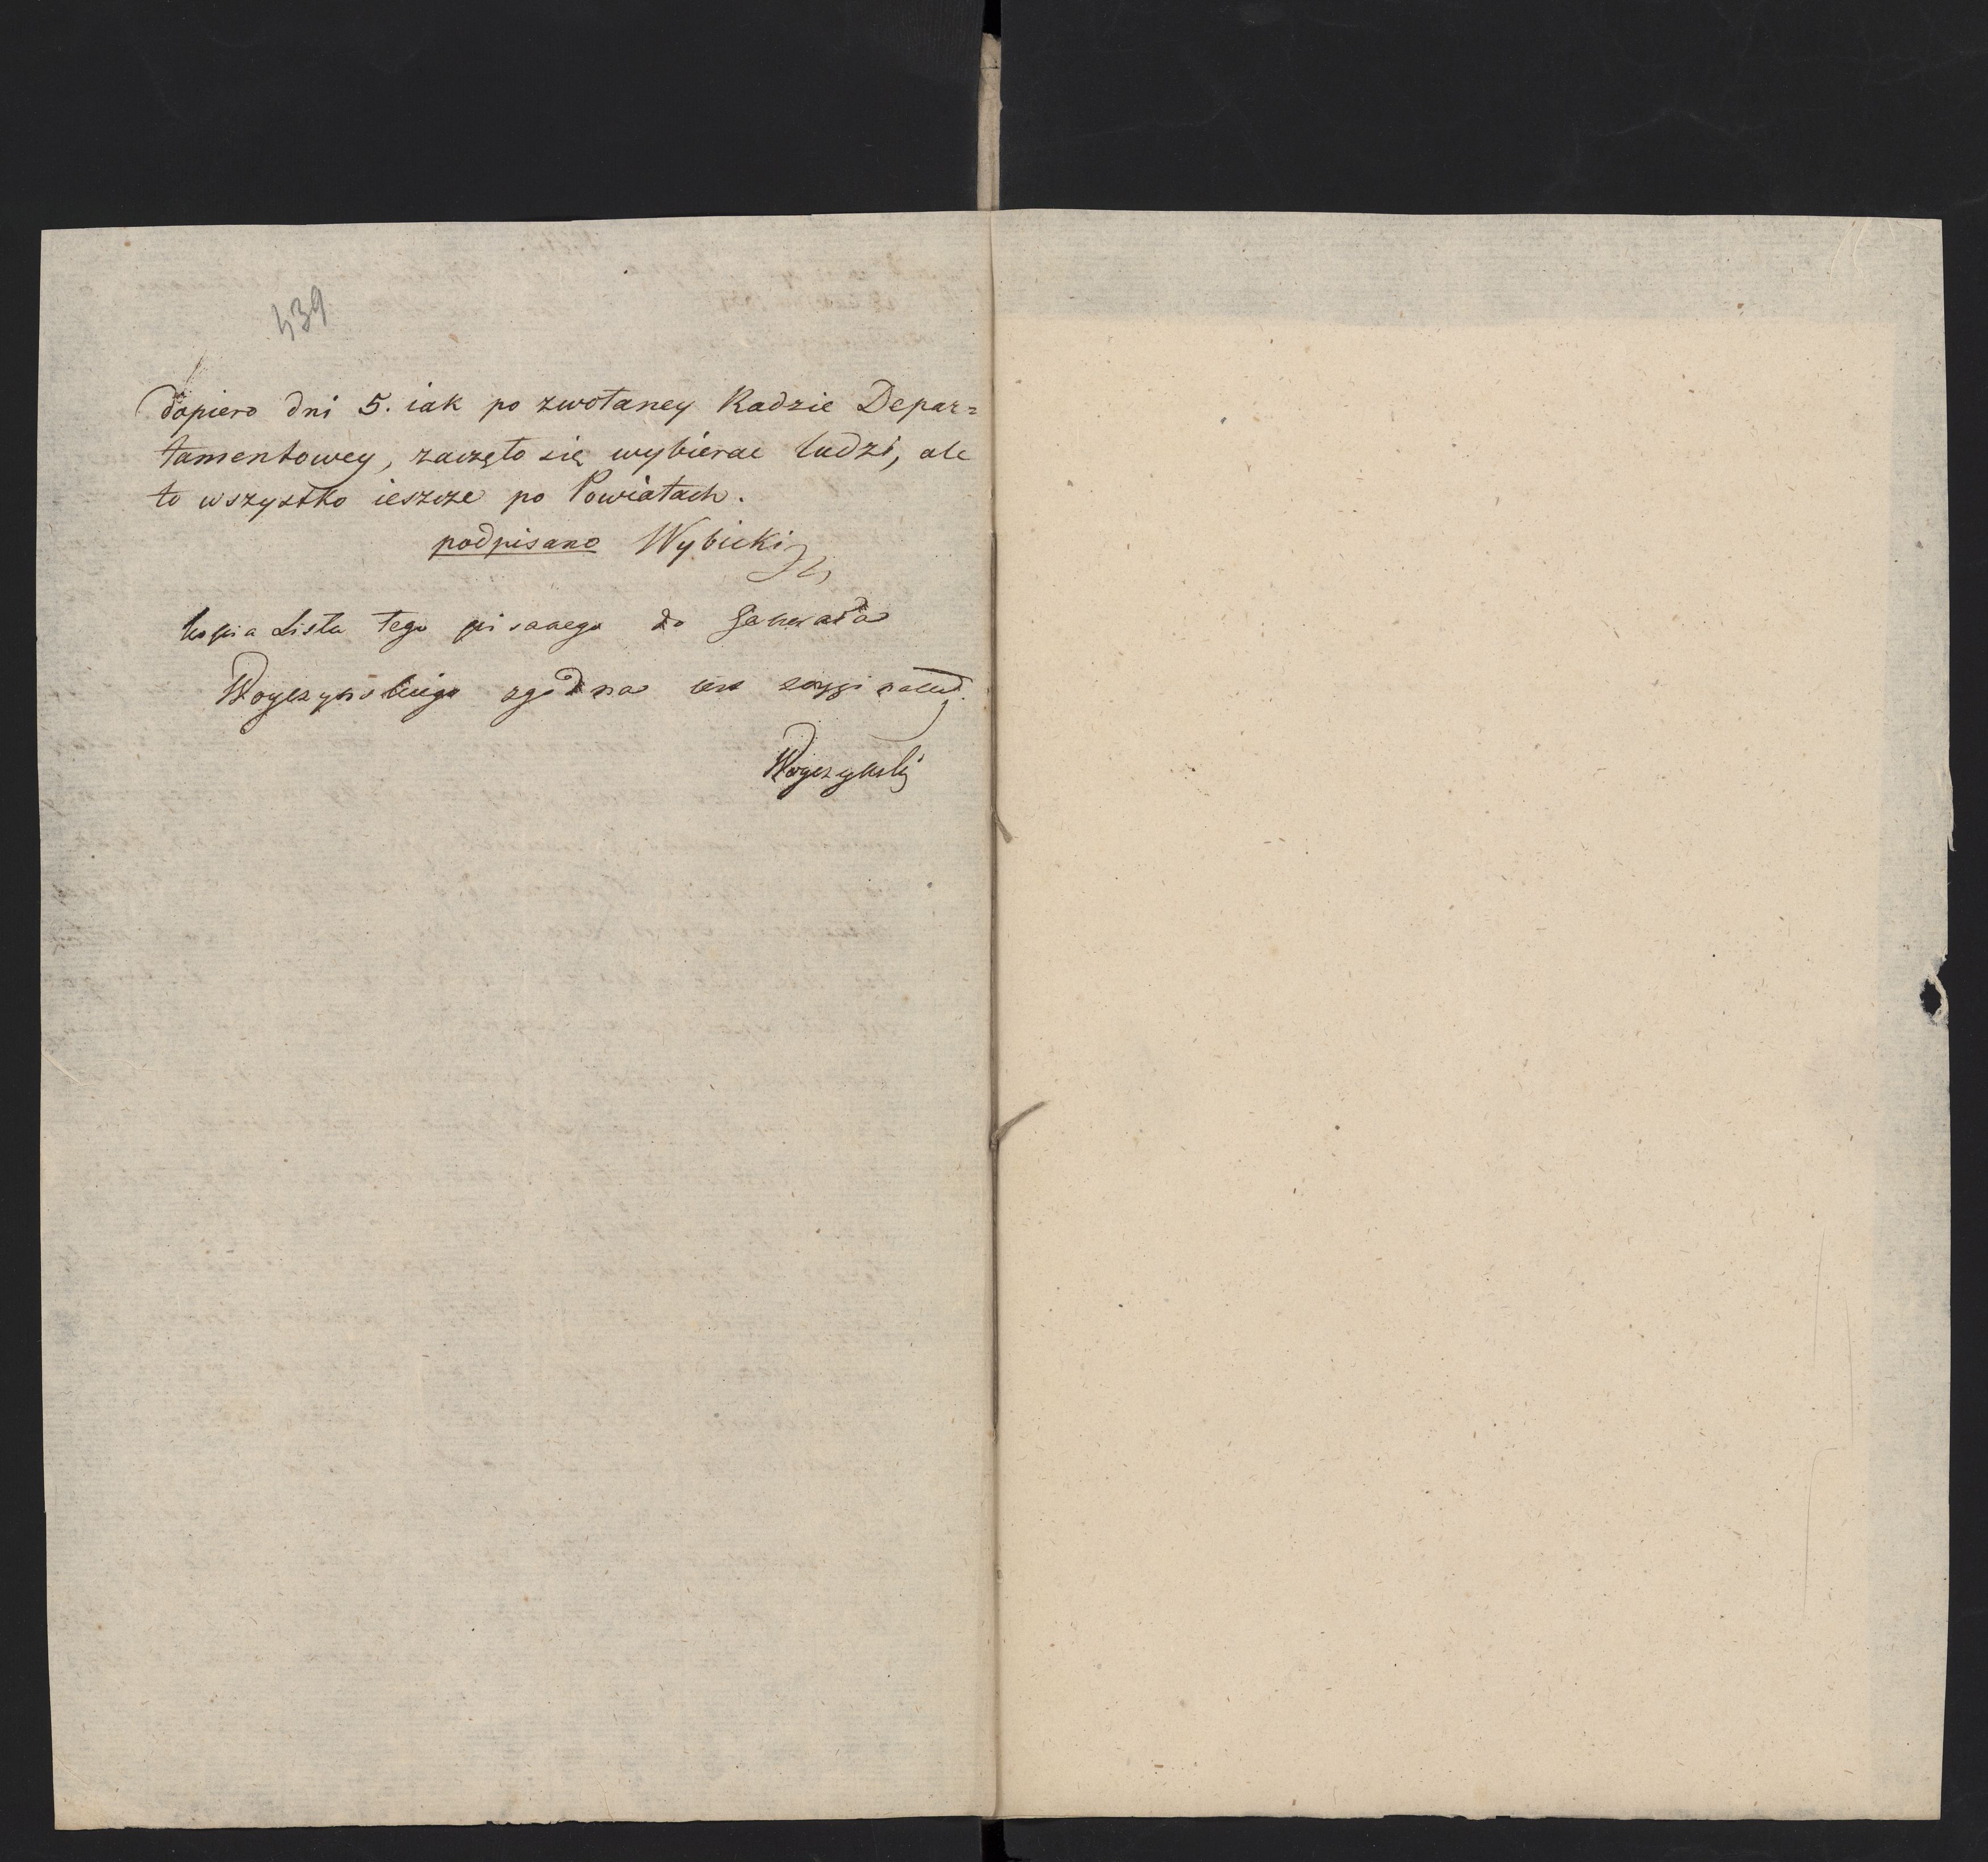 439
dopiero dni 5. iak po zwołaney Radzie Depar=
tamentowey, zaczęto się wybierac ludzi, ale
to wszystko ieszcze po Powiatach.
podpisano Wybicki
kopia Listu tego pisanego do Generała
Woyczynskiego zgodna iest z orygi nałem.
Woyczynski